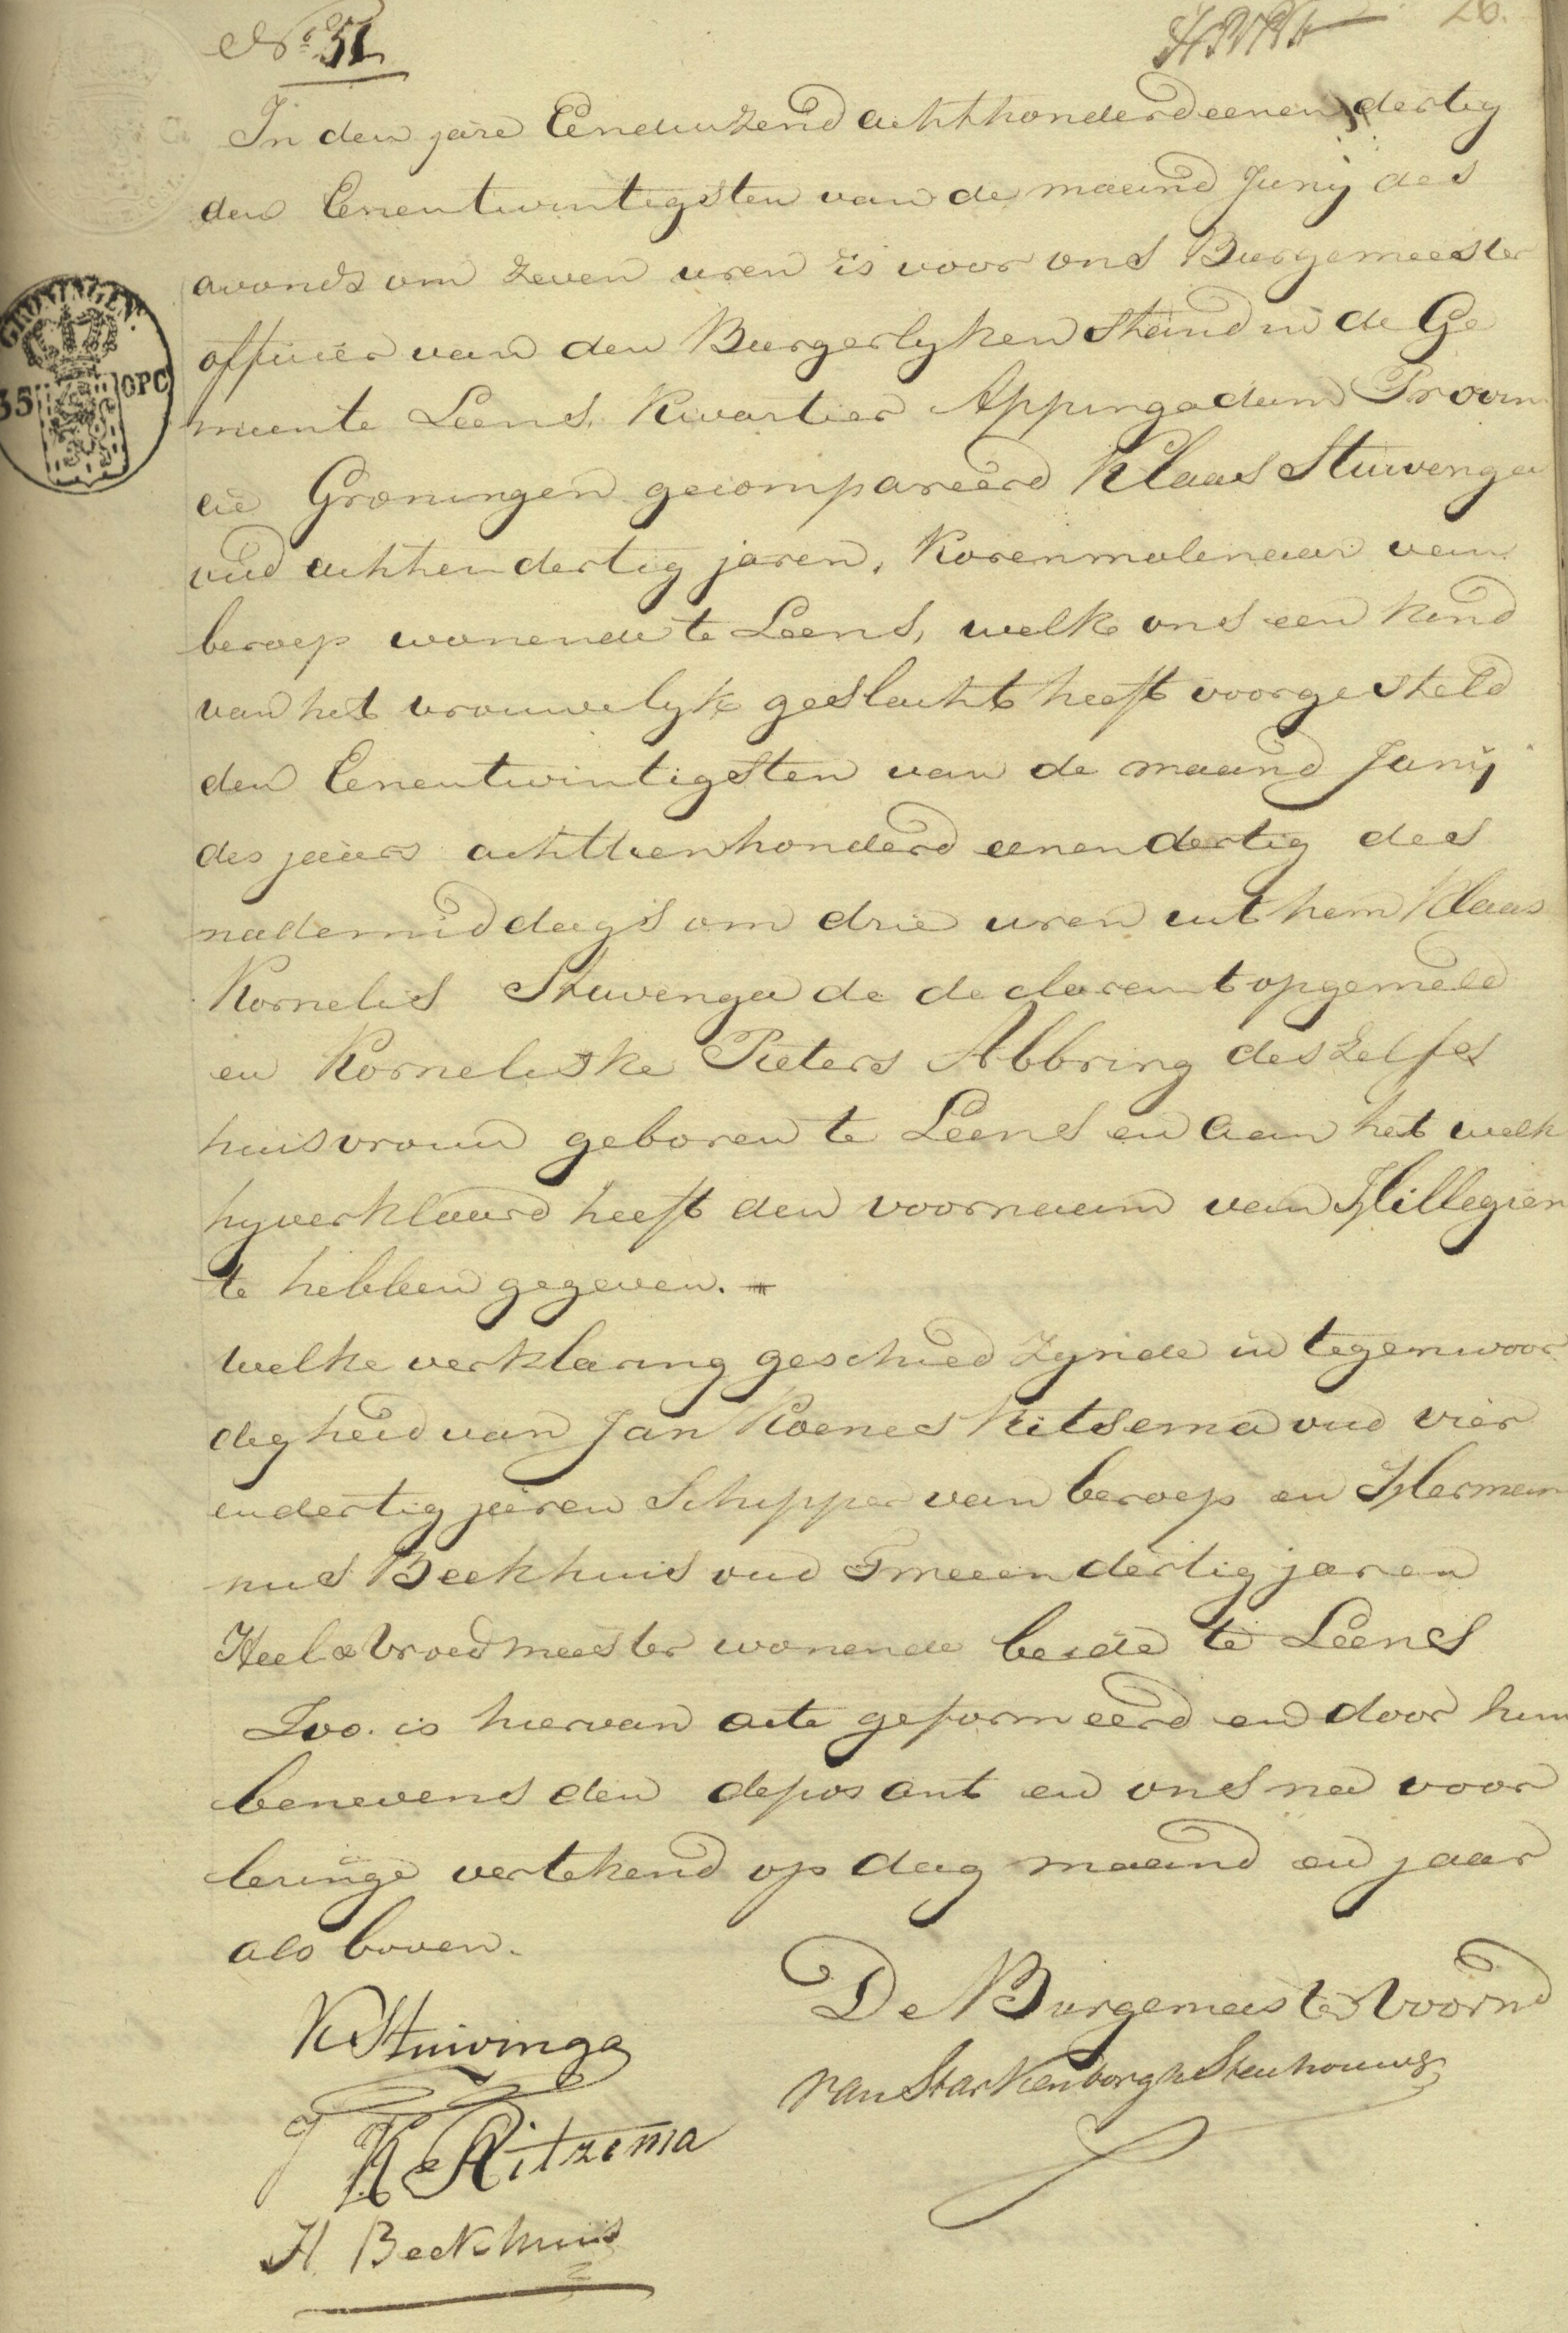 No. 51
26.
In den jare Eenduizend achthonderdeenendertig
den Eenentwintigsten van de maand Junij des
avonds om zeven uren is voor ons Burgemeester
officier van den Burgerlyken Stand in de Ge
meente Leens, Kwartier Appingadam Provin
cie Groningen gecompareerd Klaas Stuivenga
oud achtendertig jaren, Korenmolenaar van
beroep wonende te Leens, welke ons een kind
van het vrouwelyk geslacht heeft voorgesteld
den Eenentwintigsten van de maand Junij
des jaars achttienhonderd eenendertig des
nademiddags om drie uren uit hem Klaas
Kornelis Stuivenga de declarant opgemeld
en Korneliske Pieters Abbring deszelfs
huisvrouw geboren te Leens en aan het welk
hy verklaard heeft den voornaam van Hillegien
te hebben gegeven.
Welke verklaring geschied zynde in tegenwoor
digheid van Jan Koenes Ritsema oud vier
endertig jaren Schipper van beroep en Herman
nus Beekhuis oud Tweeendertig jaren
Heel & Vroedmeester wonende beide te Leens
Zoo is hiervan acte geformeerd en door hun
benevens den deposant en ons na voor
lezinge vertekend op dag maand en jaar
als boven.
De Burgemeester Voornd
K Stuivinga
van Starkenborgh Stachouwer
J K Ritzema
H Beekhuis
GRONINGEN.
35 OPC